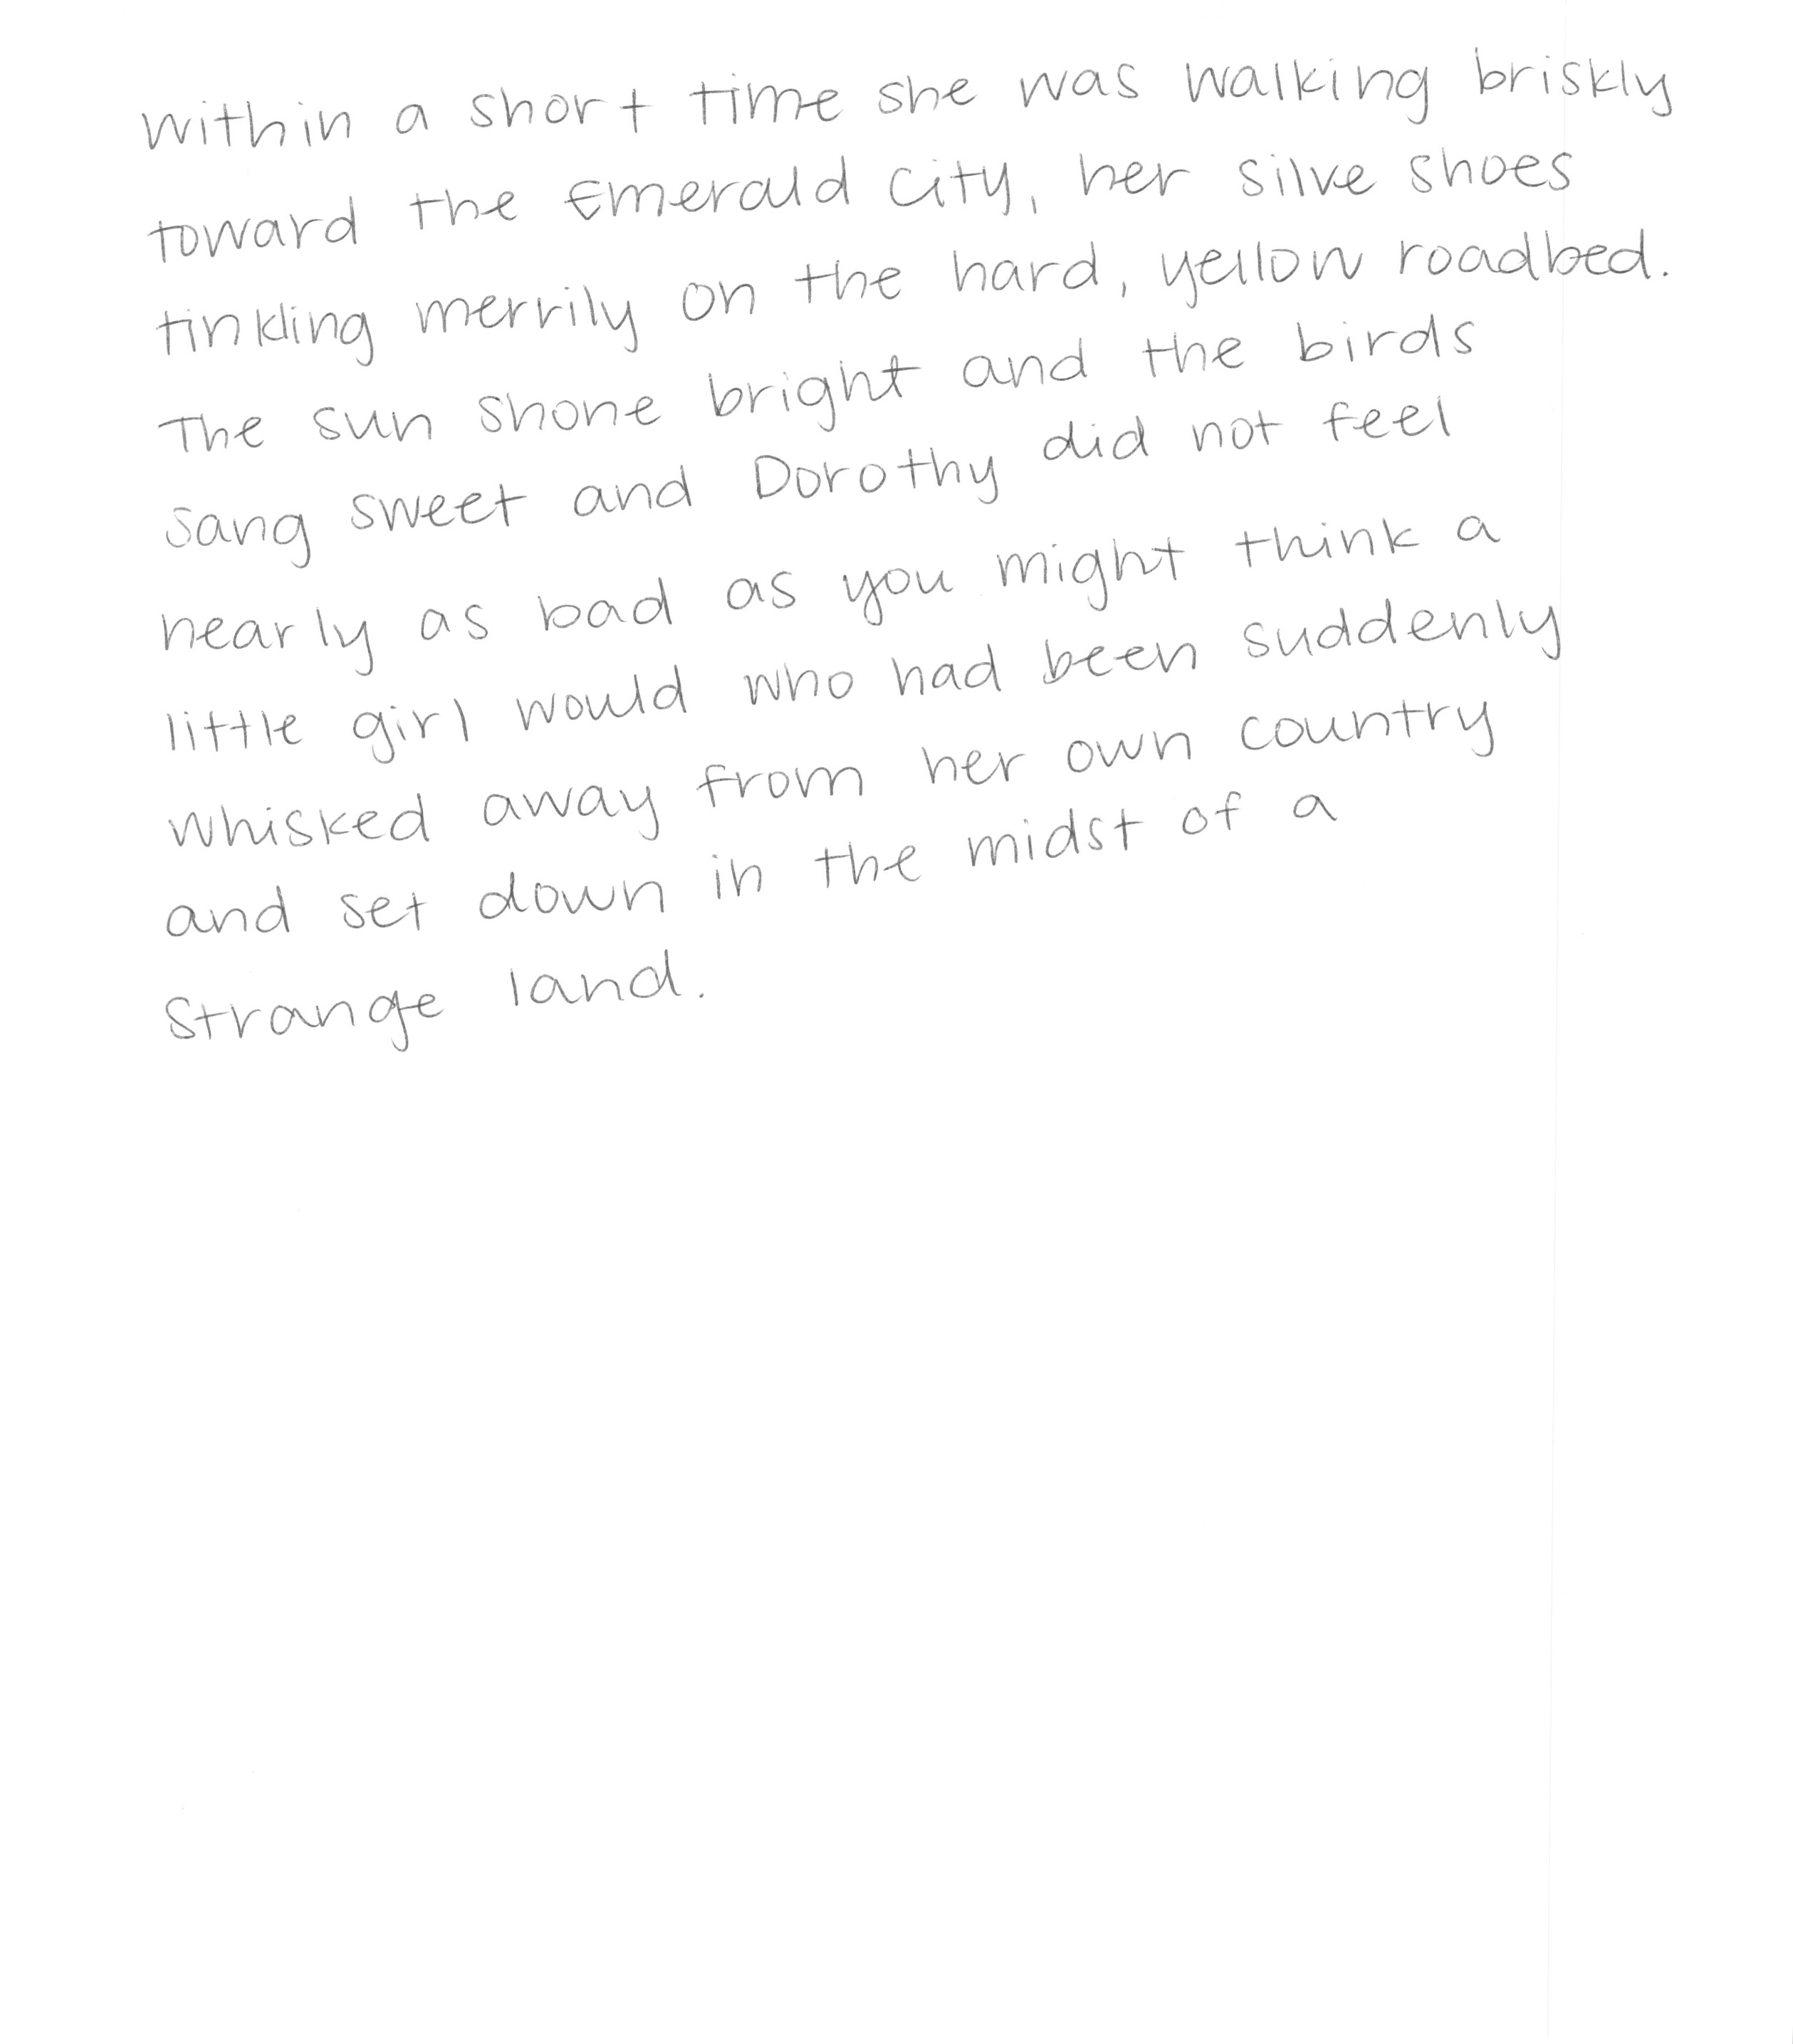 Within a short time she was walking briskly
toward the Emerald City, her silve shoes
tinkling merrily on the hard, yellow roadbed.
The sun shone bright and the birds
sang sweet and Dorothy did not feel
nearly as bad as you might think a
little girl would who had been suddenly
whisked away from her own country
and set down in the midst of a
strange land.